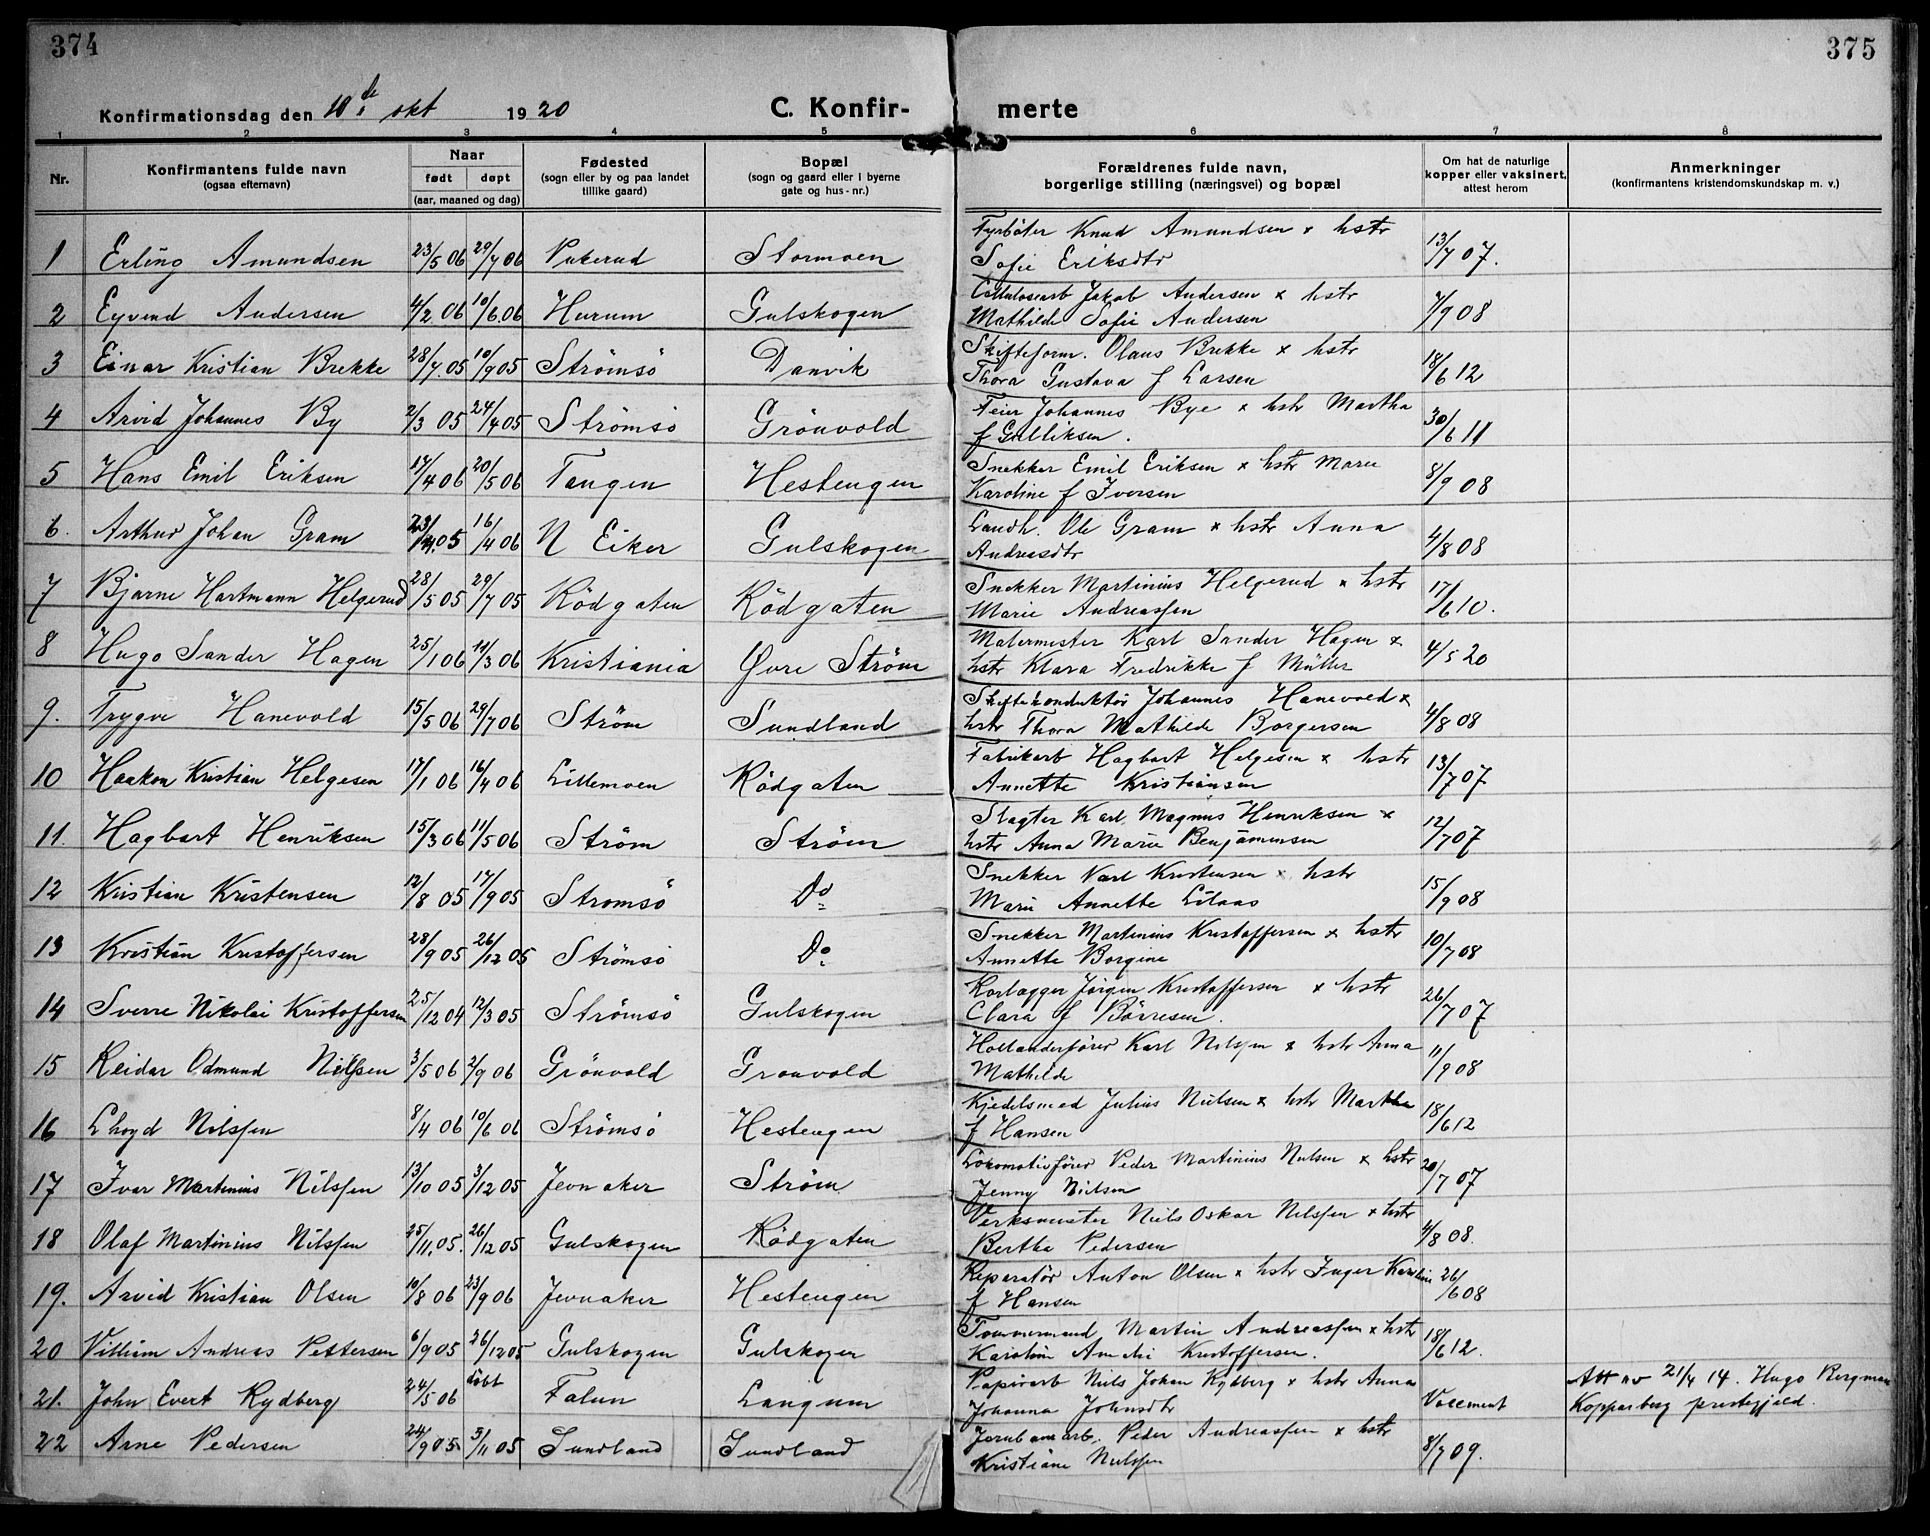 374
375
Konfirmationsdag den 10de okt 1920
C. Konfir-
merte
1 2 3 4 5 6 7 8
Nr.
Konfirmantens fulde navn
(ogsaa efternavn)
Naar
født døpt
(aar, maaned og dag)
Fødested
(sogn eller by og paa landet
tillike gaard)
Bopæl
(sogn og gaard eller i byerne
gate og hus-nr.)
Forældrenes fulde navn,
borgerlige stilling (næringsvei) og bopæl
Om hat de naturlige
kopper eller vaksinert,
attest herom
Anmerkninger
(konfirmantens kristendomskundskap m. v.)
Fyrböter Knud Amundsen x hstr
1 Erling Amundsen 23/5 06 29/7 06 Stormoen Sofie Eriksdtr 13/7 07.
Cellulosearb Jakob Andersen x hstr
2 Eyvind Andersen 4/2 06 10/6 06 Hurum Gulskogen Mathilde Sofie Andersen 7/9 08
Skifteform. Olaus Brekke x hstr
3 Einar Kristian Brekke 28/7 05 10/9 05 Strömsö Danvik Thora Gustava f Larsen 18/6 12
Feier Johannes Bye x hstr Martha
4 Arvid Johannes By 2/3 05 24/4 05 Strömsö Grönvold f Gulliksen. 30/6 11
Snekker Emil Eriksen x hstr Marie
5 Hans Emil Eriksen 17/4 06 20/5 06 Tangen Hestengen Karoline f Iversen 8/9 08
Landh. Ole Gram x hstr Anna
6. Arthur Johan Gram 05 16/4 06 N Eiker Gulskogen Andreasdtr 4/8 08
Snekker Martinius Helgerud x hstr
7 Bjarne Hartmann Helgerud 28/5 05 29/7 05 Rödgaten Rödgaten Marie Andreassen 17/6 10.
Malermester Karl Sander Hagen x
8 Hugo Sander Hagen 25/1 06 11/3 06 Kristiania Øvre Ström hstr Klara Fredrikke f Müller 4/5 20
Skiftekonduktör Johannes Hanevold x
9. Trygve Hanevold 15/5 06 29/7 06 Ström Sundland hstr Thora Mathilde Borgersen 4/8 08
Fabrikarb Hagbart Helgesen x hstr
10 Haakon Kristian Helgesen 17/1 06 16/4 06 Lillemoen Rödgaten Annette Kristiansen 13/7 07
Slagter Karl Magnus Henriksen x
11. Hagbart Henriksen 15/3 06 11/5 06 Ström Ström hstr Anna Marie Benjaminsen 12/7 07
Snekker Karl Kristensen x hstr
12 Kristian Kristensen 12/8 05 17/9 05 Stromsö Do Marie Annette Lilaas 15/9 08
Snekker Martinius Kristoffersen x hstr
13 Kristian Kristoffersen 28/9 05 26/12 05 Strömsö Do Annette Borgine 10/7 08
Jörgen Kristoffersen x hstr
14 Sverre Nikolai Kristoffersen 25/12 04 12/3 05 Strömsö Gulskogen Clara f Börresen. 26/7 07
Hollanderförer Karl Nilssen x hstr Anna
15 Reidar Odmund Nilssen 3/5 06 2/9 06 Grönvold Gronvold Mathilde 11/9 08
Kjedelsmed Julius Nielsen x hstr Martha
16 Lhoyd Nilssen 8/4 06 10/6 06 Strömsö Hestengen f Hansen 18/6 12
Lokomotivförer Peder Martinius Nielsen x hstr
17 Ivar Martinius Nilssen 13/10 05 3/12 05 Jevnaker Ström Jenny Nielsen 20/7 07
Verksmester Niels Oskar Nilssen x hstr
18 Olaf Martinius Nilssen 25/11. 05. 26/12 05 Gulskogen Rödgaten Bertha Pedersen 4/8 08.
Reparatör Anton Olsen x hstr Inger Karoline
19. Arvid Kristian Olsen 10/8 06 23/9 06 Jevnaker Hestengen f Hansen 26/6 08
Tommermand Martin Andreassen x hstr
20 Villiam Andreas Pettersen 6/9 05 26/12 05 Gulskogen Gulskogen Karoline Kristoffersen. 18/6 12.
Papirarb Nils Johan Rydberg x hstr Anna
21. John Evert Rydberg 24/5 06 döbt Falun Langum Johanna Johnsdtr Att av 21/4 14. Hugo Bergman
Kopparberg prestegjeld.
Jernbanearb. Peder Andreassen x hstr
22 Arne Pedersen 24/9 05 3/11 05 Sundland Sundland Kristiane Nielssen 8/7 09.